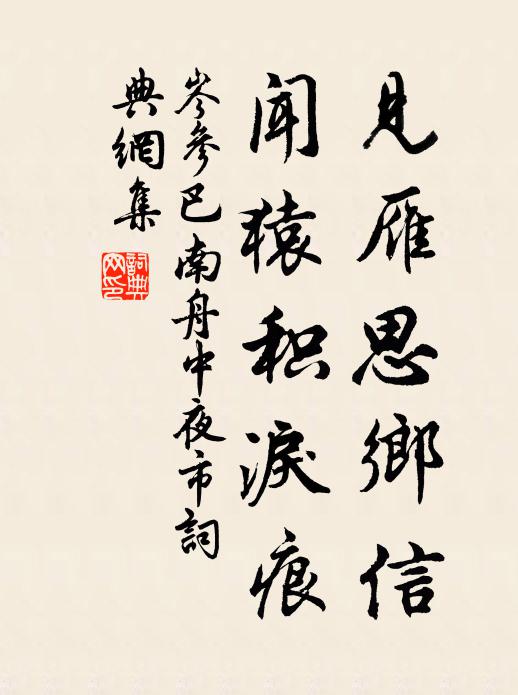 見雁思鄉信
聞猿积淚痕
岑參巴南舟中夜市詞
典網集
詞典
网印